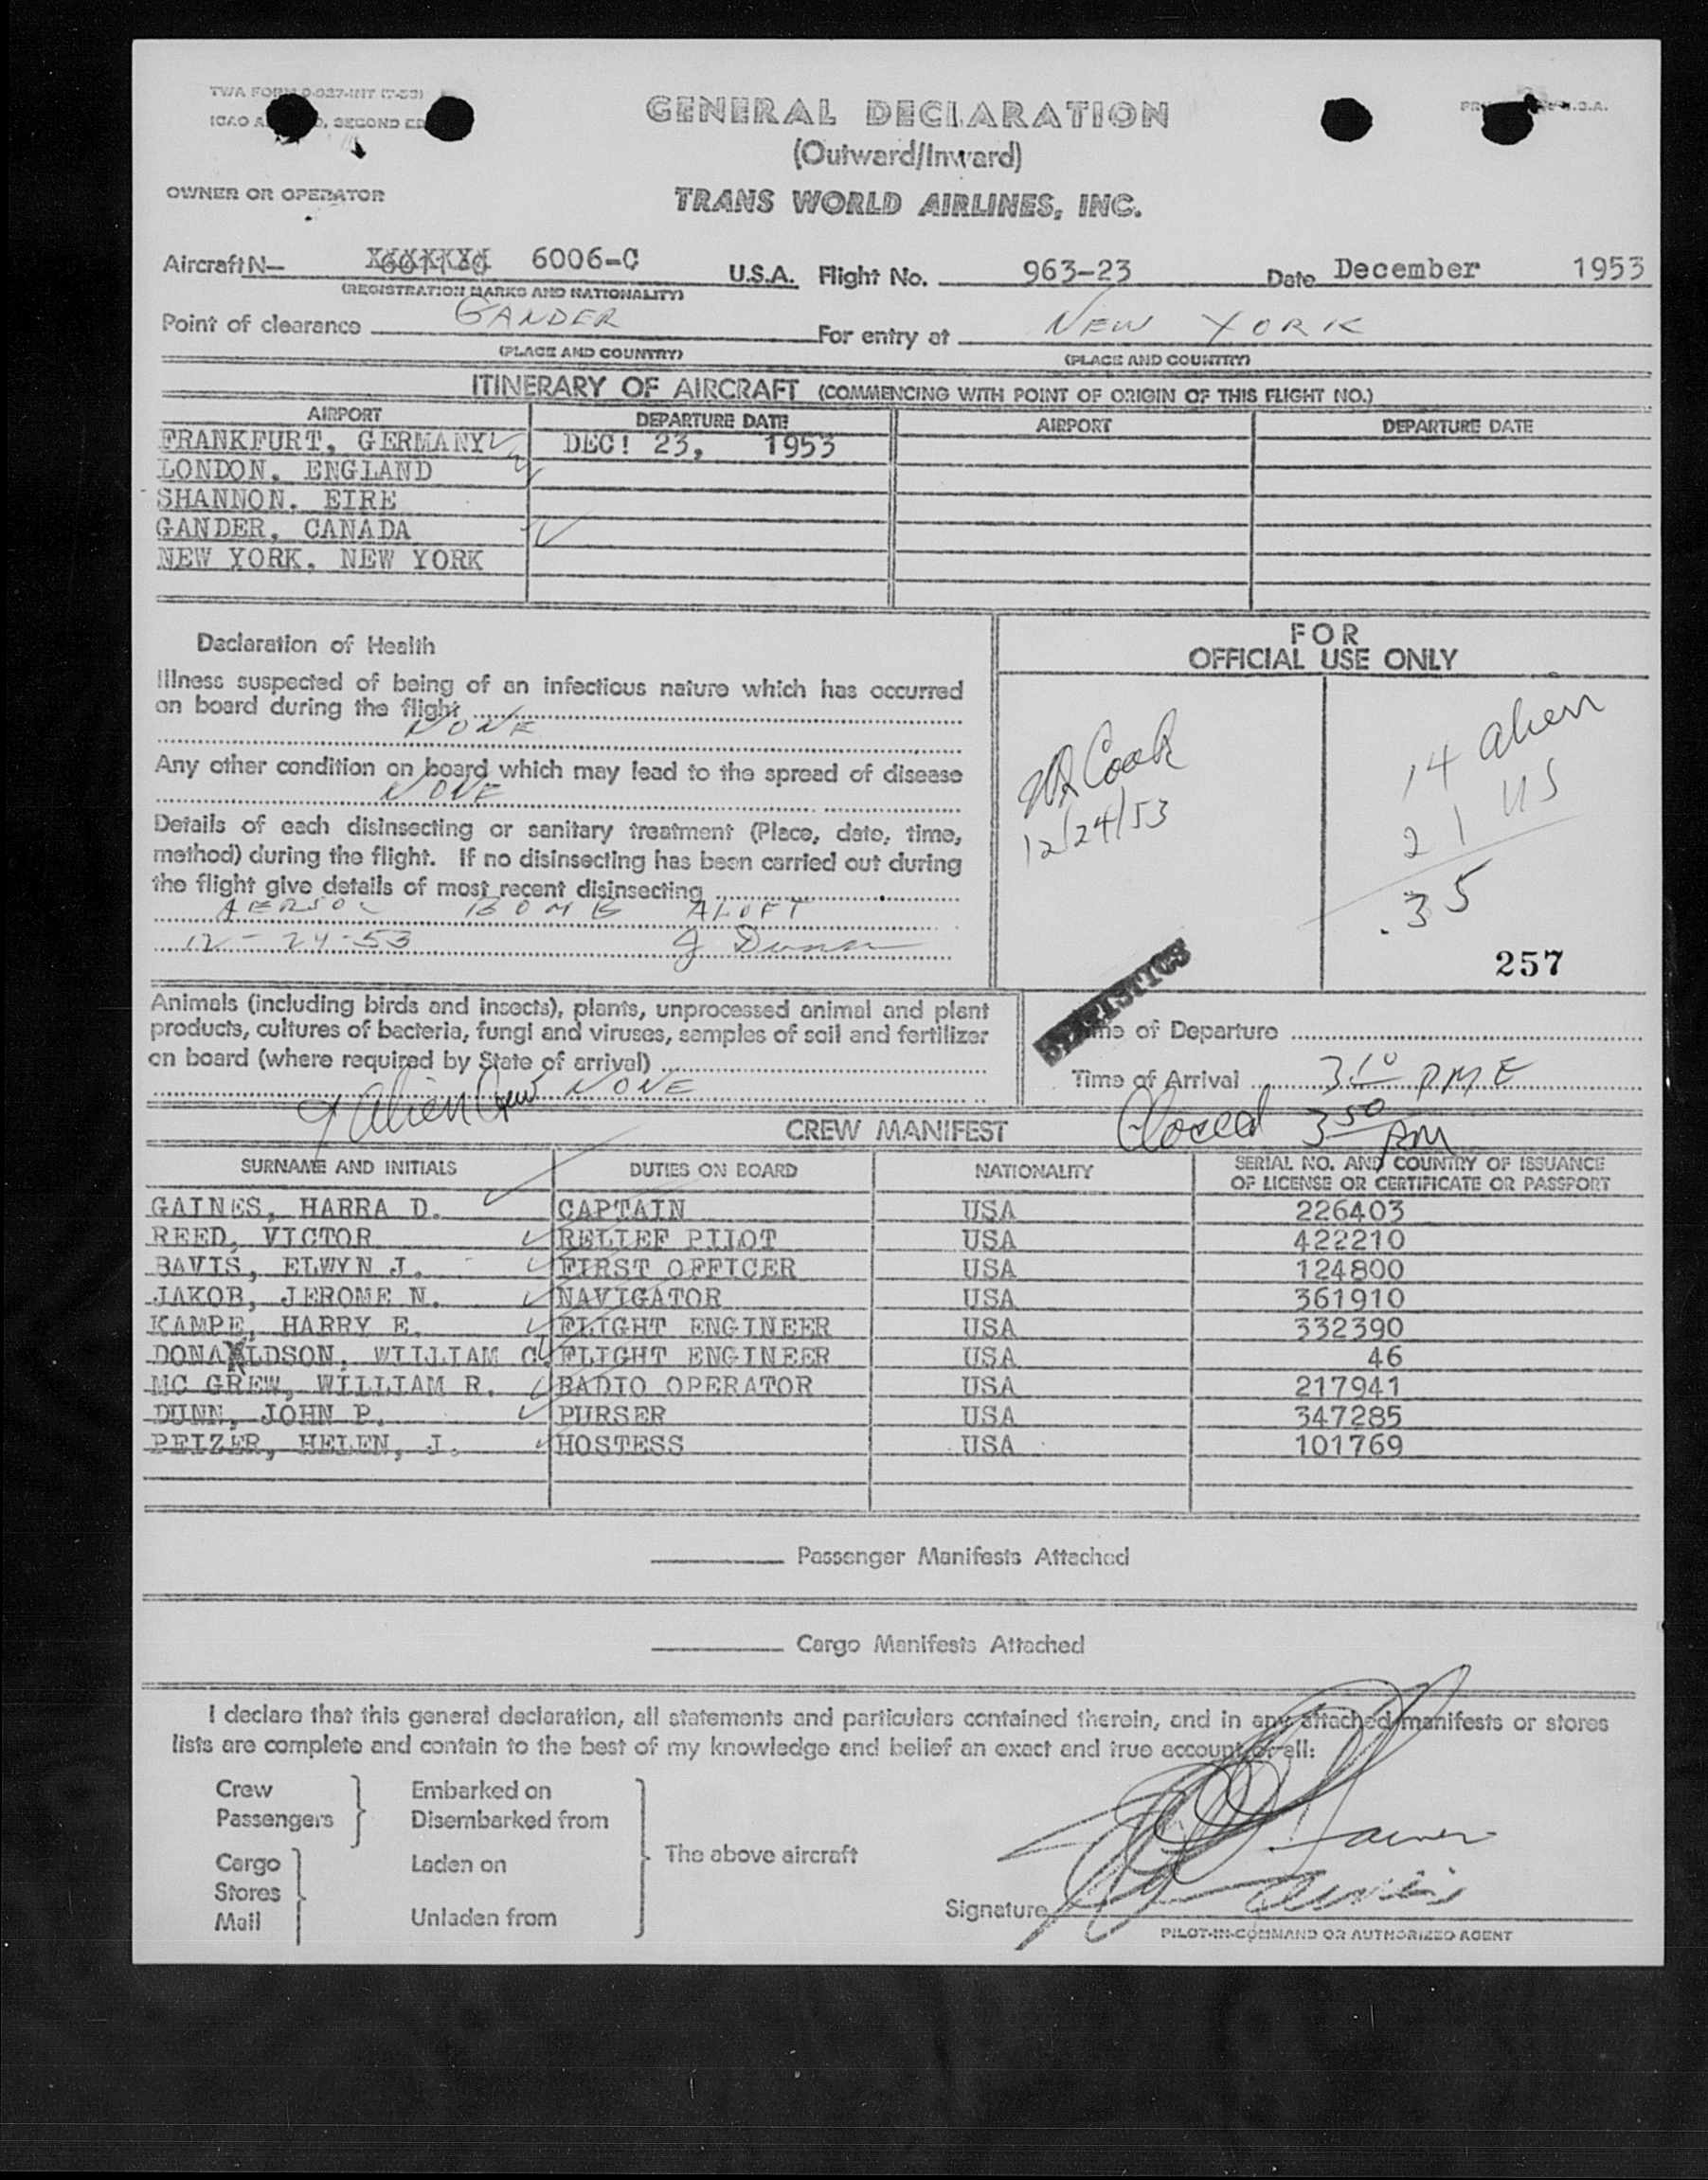 TWA FORM
GENERAL DECLARATION
(Outward/Inward)
OWNER OR OPERATOR
TRANS WORLD AIRLINES, INC.
Aircraft N— 6006-C U.S.A. Flight No. 963-23 Date December 1953
(REGISTRATION MARKS AND NATIONALITY)
Point of clearance GANDER For entry at NEW YORK
(PLACE AND COUNTRY) (PLACE AND COUNTRY)
ITINERARY OF AIRCRAFT (COMMENCING WITH POINT OF ORIGIN OF THIS FLIGHT NO.)
AIRPORT DEPARTURE DATE AIRPORT DEPARTURE DATE
FRANKFURT, GERMANY DEC! 23, 1953
LONDON, ENGLAND
SHANNON, EIRE
GANDER, CANADA
NEW YORK, NEW YORK
Declaration of Health
Illness suspected of being of an infectious nature which has occurred
on board during the flight
NONE
Any other condition on board which may lead to the spread of disease
NONE
Details of each disinsecting or sanitary treatment (Place, date, time,
method) during the flight. If no disinsecting has been carried out during
the flight give details of most recent disinsecting
AERSOL BOMB ALOFT
12-24-53 J Dunn
FOR
OFFICIAL USE ONLY
Cook
12/24/53
14 alien
21 US
35
257
Animals (including birds and insects), plants, unprocessed animal and plant
products, cultures of bacteria, fungi and viruses, samples of soil and fertilizer
on board (where required by State of arrival)
NONE
Alien Crew
STATISTICS
Time of Departure
Time of Arrival 3:10 PM E
Closed 3:50 PM
CREW MANIFEST
SURNAME AND INITIALS DUTIES ON BOARD NATIONALITY SERIAL NO. AND COUNTRY OF ISSUANCE
OF LICENSE OR CERTIFICATE OR PASSPORT
GAINES, HARRA D. CAPTAIN USA 226403
REED, VICTOR RELIEF PILOT USA 422210
BAVIS, ELWYN J. FIRST OFFICER USA 124800
JAKOB, JEROME N. NAVIGATOR USA 361910
KAMPE, HARRY E. FLIGHT ENGINEER USA 332390
DONALDSON, WILLIAM C. FLIGHT ENGINEER USA 46
MC GREW, WILLIAM R. RADIO OPERATOR USA 217941
DUNN, JOHN P. PURSER USA 347285
PEIZER, HELEN, J. HOSTESS USA 101769
Passenger Manifests Attached
Cargo Manifests Attached
I declare that this general declaration, all statements and particulars contained therein, and in any attached manifests or stores
lists are complete and contain to the best of my knowledge and belief an exact and true account of all:
Crew Embarked on
Passengers Disembarked from
The above aircraft
Cargo Laden on
Stores
Mail Unladen from
Signature
PILOT-IN-COMMAND OR AUTHORIZED AGENT